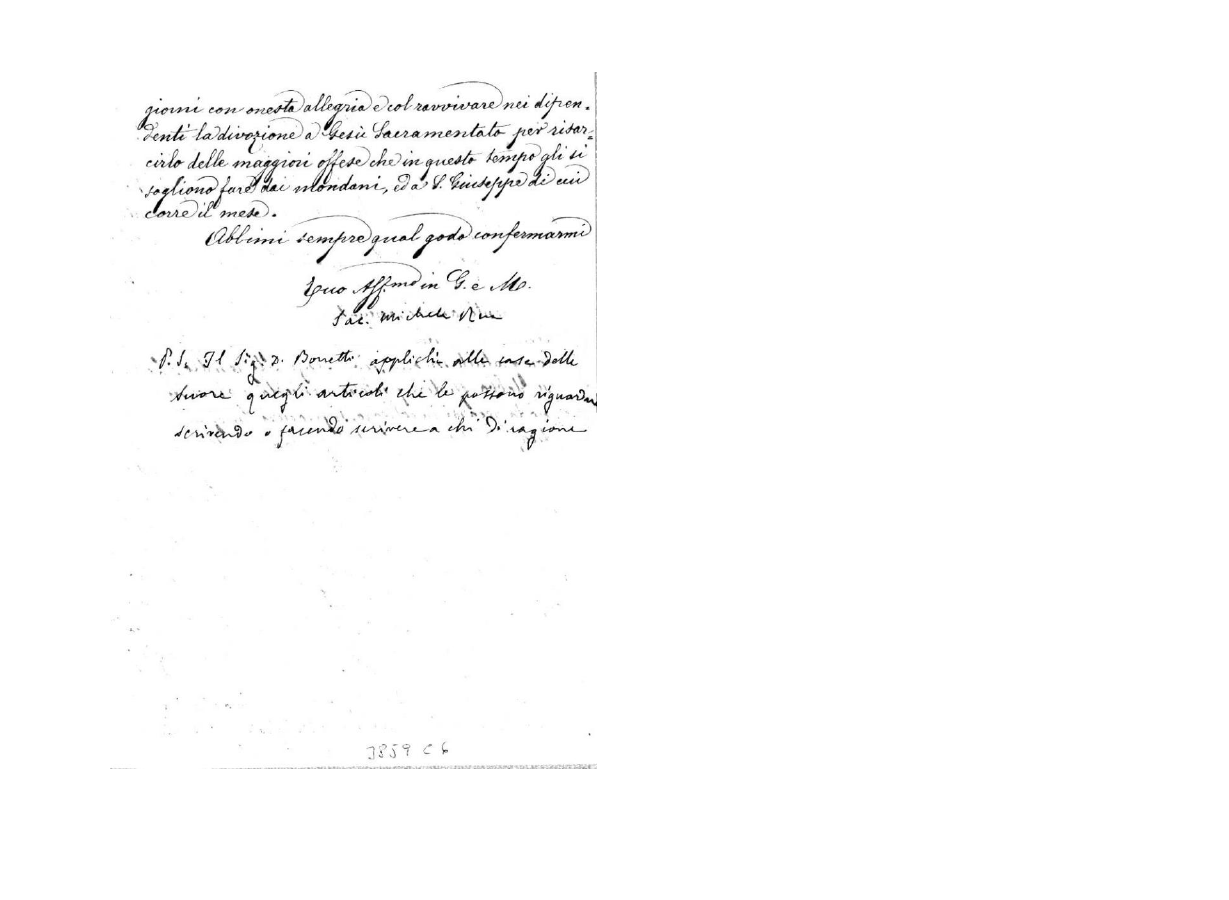 giorni con onesta allegria e col ravvivare nei dipen-
denti la divozione a Gesù Sacramentato per risar=
cirlo delle maggiori offese che in questo tempo gli si
sogliono fare dai mondani, ed a S. Giuseppe di cui
corre il mese.
Abbimi sempre qual godo confermarmi
Tuo Aff.mo in G. e M.
Sac. Michele Rua
P. S. Il Sig. D. Bonetti applichi alle case delle
suore quegli articoli che le possono riguardare
scrivendo o facendo scrivere a chi di ragione
3859 C 6